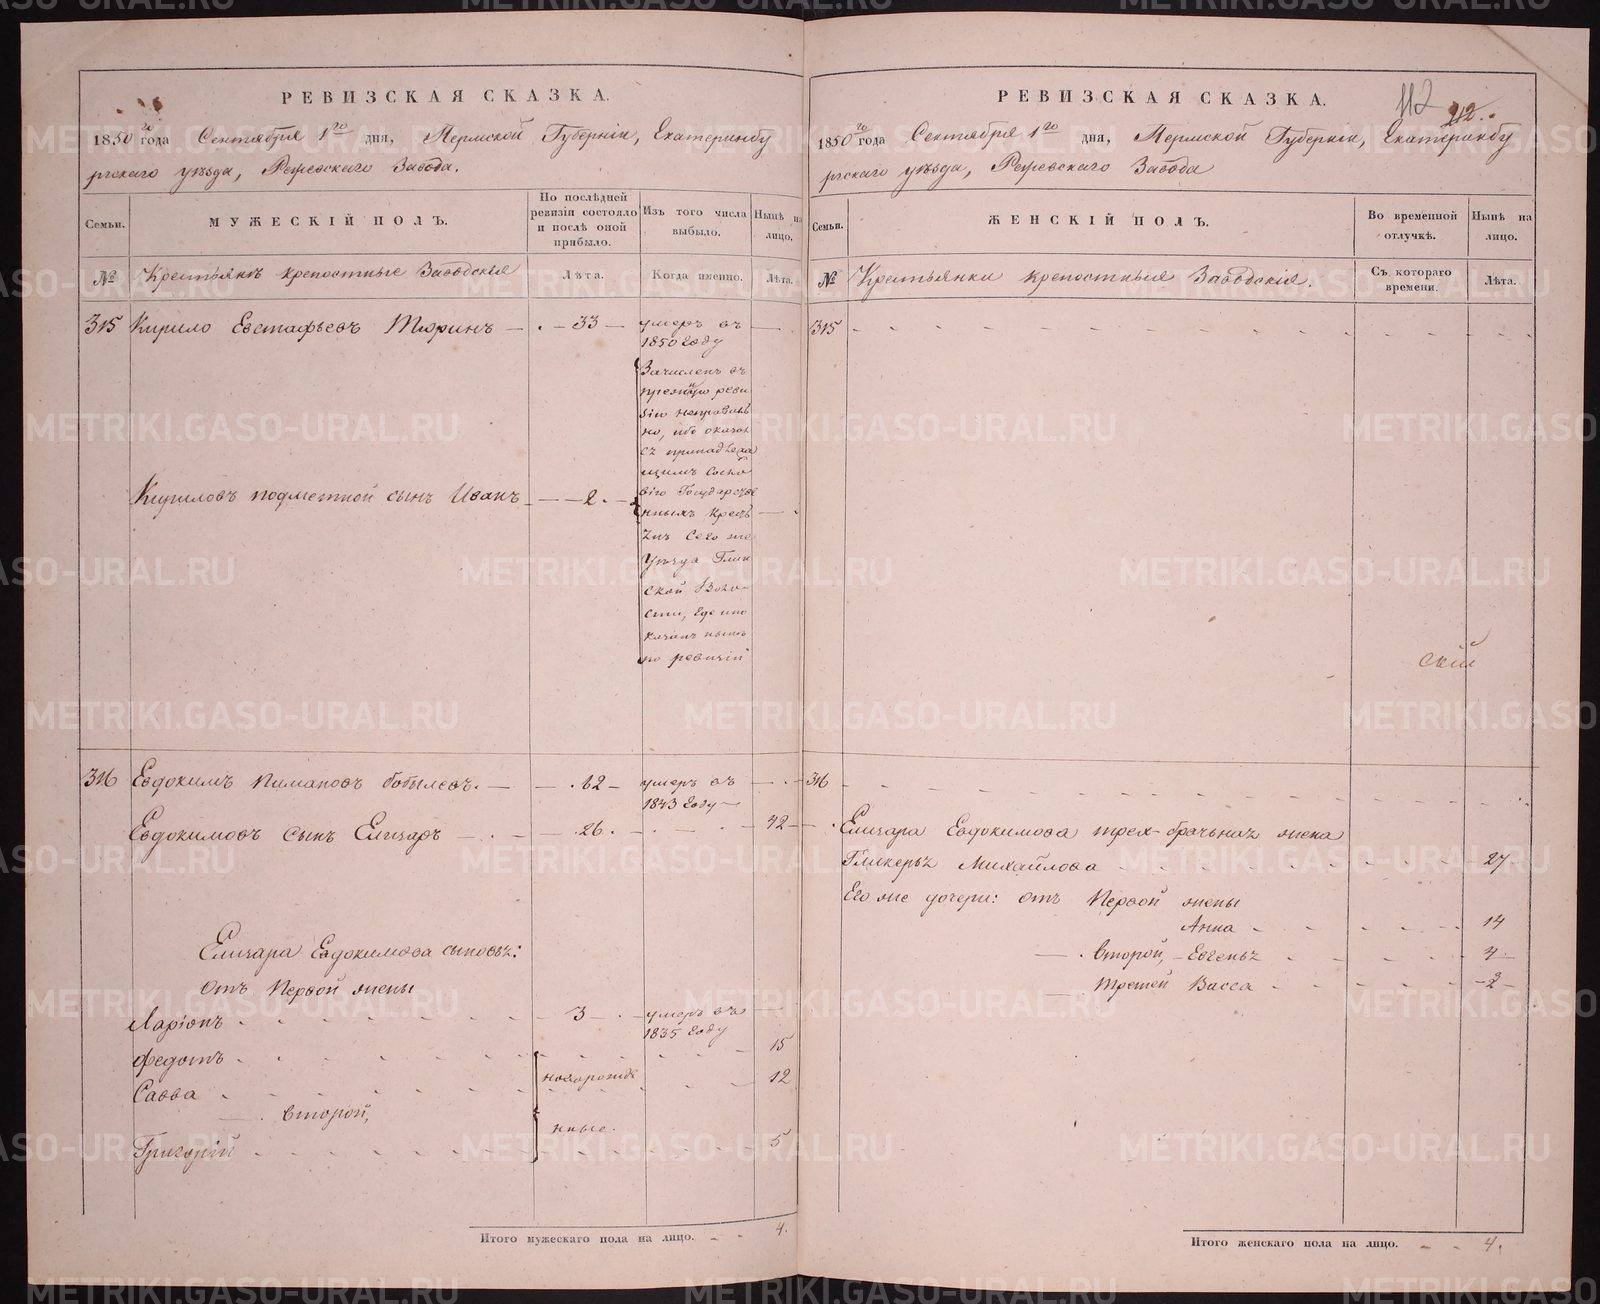 РЕВИЗСКАЯ СКАЗКА.
1850го года Сентября 1го дня, Пермской Губерніи, Екатеринбу
ргскаго уѣзда, Режевскаго Завода.
Семьи.
МУЖЕСКІЙ ПОЛЪ.
По послѣдней
ревизіи состояло
и послѣ оной
прибыло.
Изъ того числа
выбыло.
Нынѣ на
лицо.
№
Крестьянъ крепостные Заводскія
Лѣта.
Когда именно.
Лѣта.
315 Кирило Евстафьевъ Тюринъ 33 умеръ въ
1850 Году
Зачисленъ въ
прежнюю реви
зію неправиль
но, ибо оказал
съ принадлежа
щимъ
Государстве
нныхъ Крест
Сего же
Уѣзда Глин
ской Воло-
сти, где и по
казанъ ныне
по ревизіи
Кириловъ подметной сынъ Иванъ 2.
316 Евдокимъ Пимановъ Бобылевъ. 62 умеръ въ
1843 Году
Евдокимовъ сынъ Елизаръ 26. 42
Елизара Евдокимова сыновья:
Отъ Первой жены
Ларіонъ 3 умеръ въ
1835 Году
Федотъ 15
Савва новорожде 12
второй, нные.
Григорій 5
Итого мужескаго пола на лицо. 4.
РЕВИЗСКАЯ СКАЗКА.
112
212.
1850го года Сентября 1го дня, Пермской Губерніи, Екатеринбу
ргскаго уѣзда, Режевскаго Завода
Семьи.
ЖЕНСКІЙ ПОЛЪ.
Во временной
отлучкѣ.
Нынѣ на
лицо.
№
Крестьянки крепостныя Заводскія.
Съ котораго
времени.
Лѣта.
315
скій
316
Елизара Евдокимова трех-брачныхъ жена
Гликерья Михайлова 27
Его же дочери: Отъ Первой жены
Анна 14
второй, Евгенья 4
третей Васса 2
Итого женскаго пола на лицо. 4.
METRIKI.GASO-URAL.RU